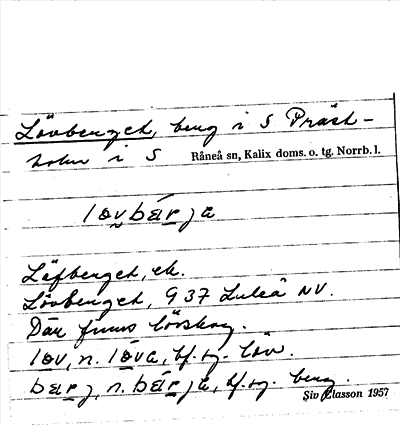 Lövberget, berg i S Präst-
holm i S Råneå sn, Kalix doms. o. tg. Norrb. l.
løvbærja
Löfberget, ek.
Lövberget, 937 Luleå NV.
Där finns lövskog.
løv, n. løva, bf. sg. löv.
bærj, n. bærja, bf. sg. berg.
Siv Classon 1957